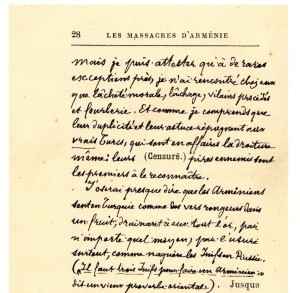 28 LES MASSACRES D'ARMÉNIE
mais je puis attester qu'à de rares
exceptions près, je n'ai rencontré chez eux
que lâcheté morale, lâchage, vilains procédés
et fourberie. Et comme je comprends que
leur duplicité et leur astuce répugnent aux
vrais Turcs, qui sont en affaires la droiture
même! Leurs (Censuré.) pires ennemis sont
les premiers à le reconnaître.
J'oserai presque dire que les Arméniens
sont en Turquie comme des vers rongeurs dans
un fruit, drainant à eux tout l'or, par
n'importe quel moyen, par l'usure
surtout, comme naguère les Juifs en Russie.
("Il faut trois Juifs pour faire un Arménien",
dit un vieux proverbe oriental). Jusque